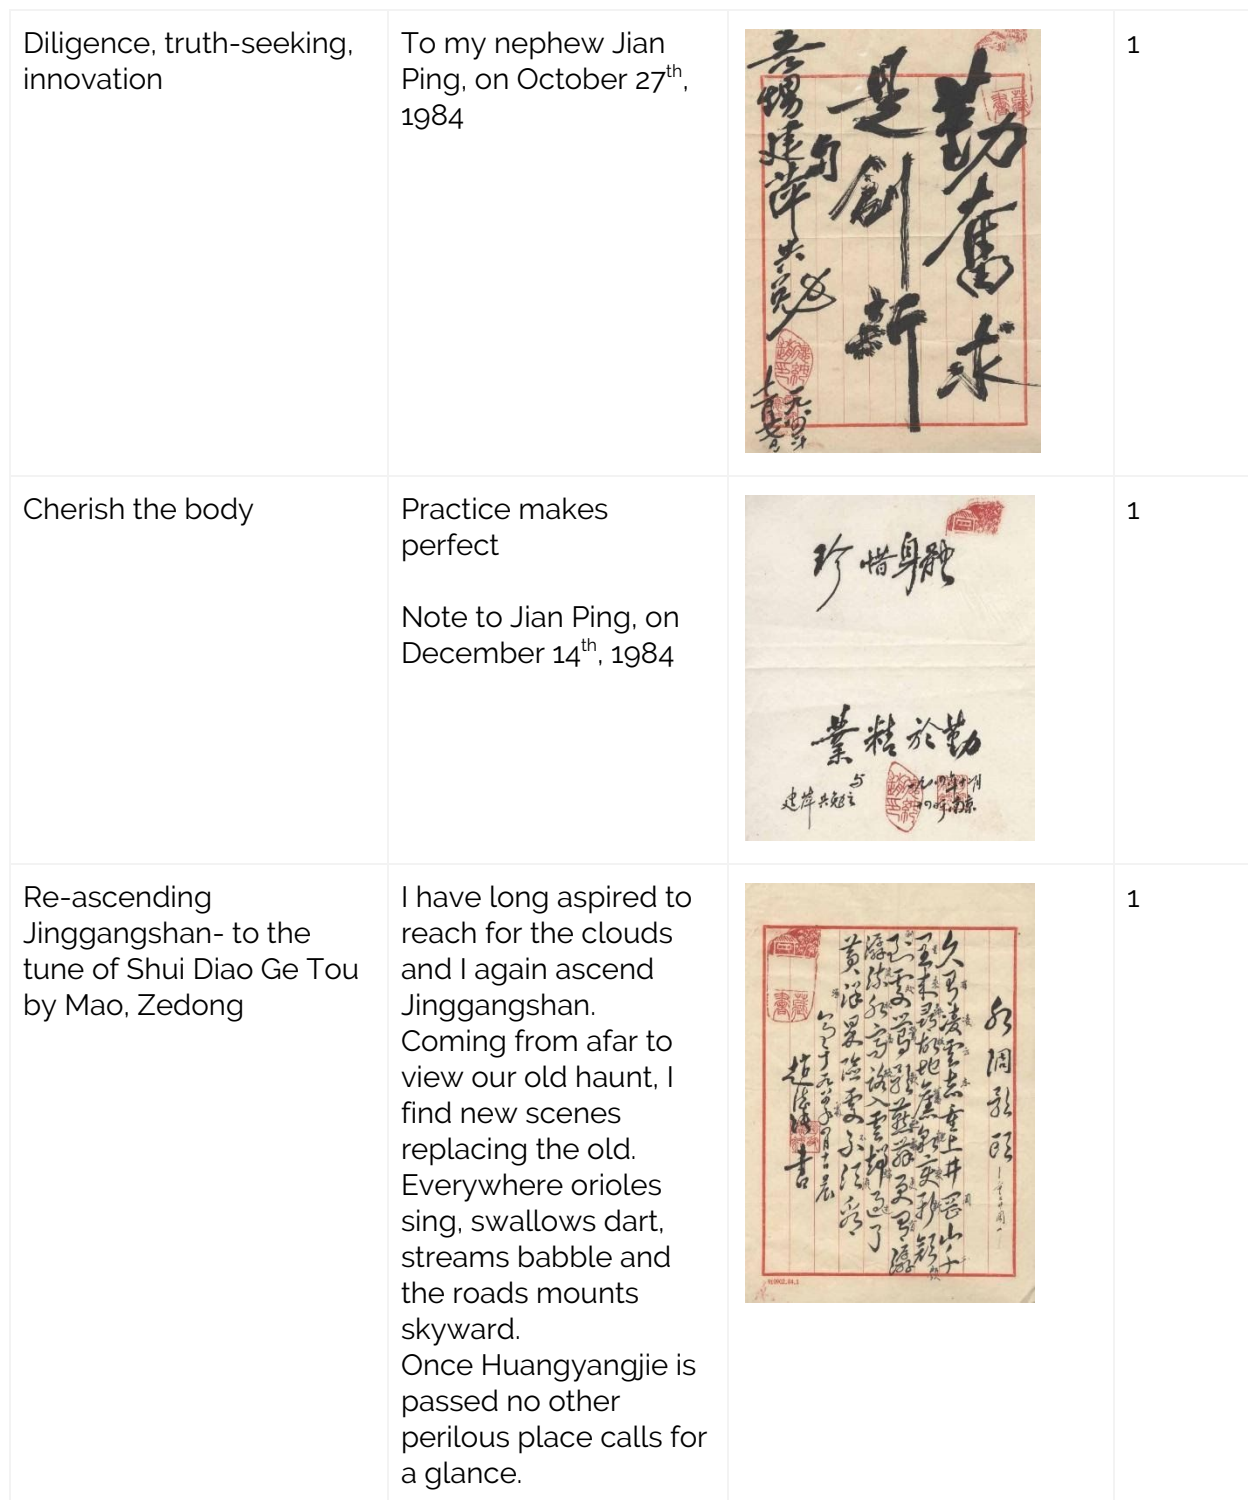 Diligence, truth-seeking,
innovation
To my nephew Jian
Ping, on October 27th,
1984
勤奮求
是創新
与
吾甥建萍共勉
1
Cherish the body
Practice makes
perfect
Note to Jian Ping, on
December 14th, 1984
珍惜身體
業精於勤
与
建萍共勉之
1
Re-ascending
Jinggangshan- to the
tune of Shui Diao Ge Tou
by Mao, Zedong
I have long aspired to
reach for the clouds
and I again ascend
Jinggangshan.
Coming from afar to
view our old haunt, I
find new scenes
replacing the old.
Everywhere orioles
sing, swallows dart,
streams babble and
the roads mounts
skyward.
Once Huangyangjie is
passed no other
perilous place calls for
a glance.
水調歌頭
久有凌雲志重上井岡山千
里來尋故地舊貌變新顏
到處鶯歌燕舞更有潺
潺流水高路入雲端過了
黃洋界險處不須看
書
1